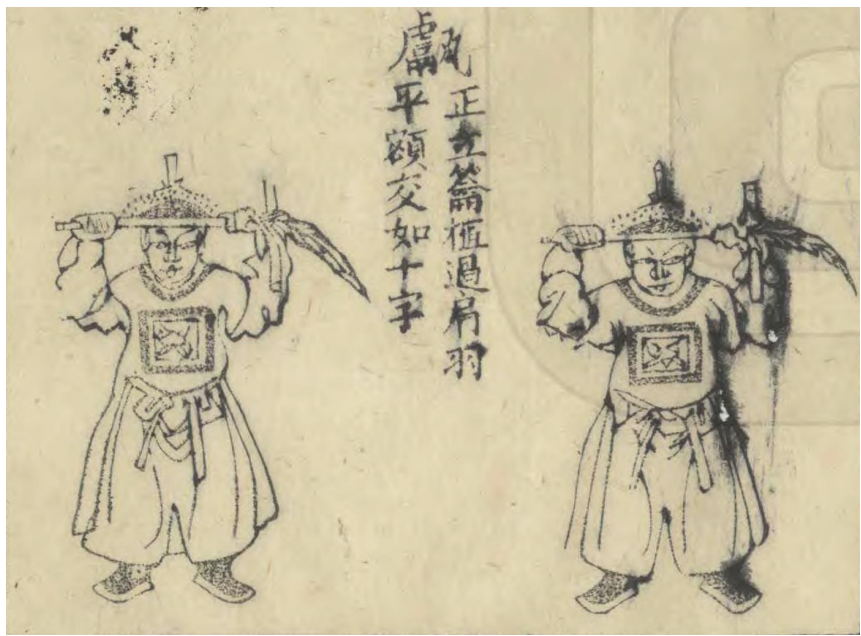 正立籥植過肩羽
平額交如十字